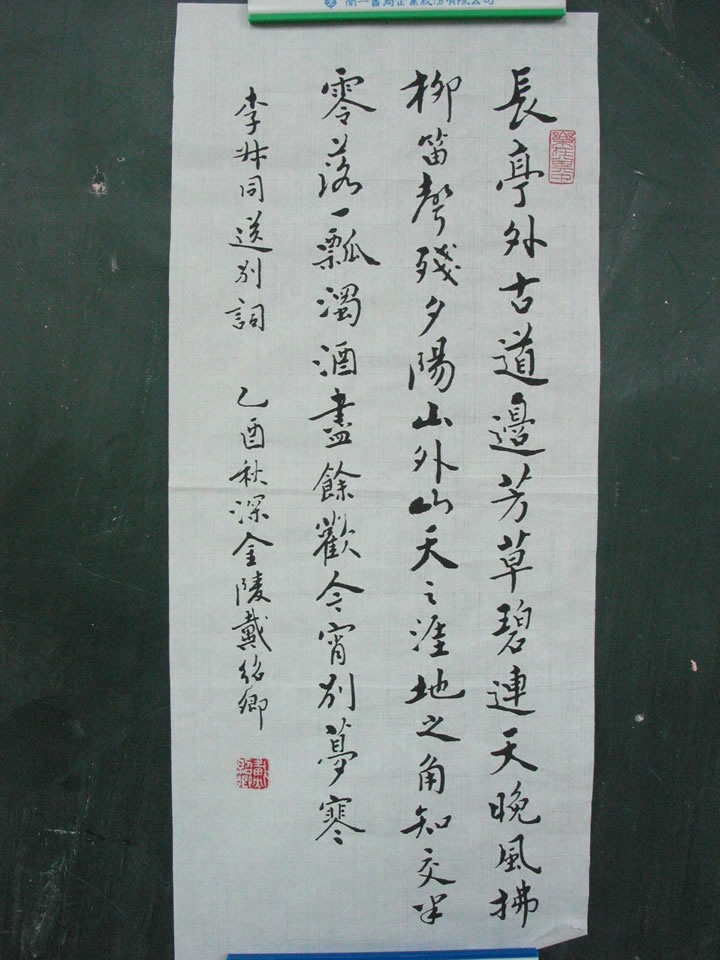 南一書局企業股份有限公司
長亭外古道邊芳草碧連天晚風拂
柳笛聲殘夕陽山外山天之涯地之角知交半
零落一瓢濁酒盡餘歡今宵別夢寒
李叔同送別詞 乙酉秋深金陵戴紹卿